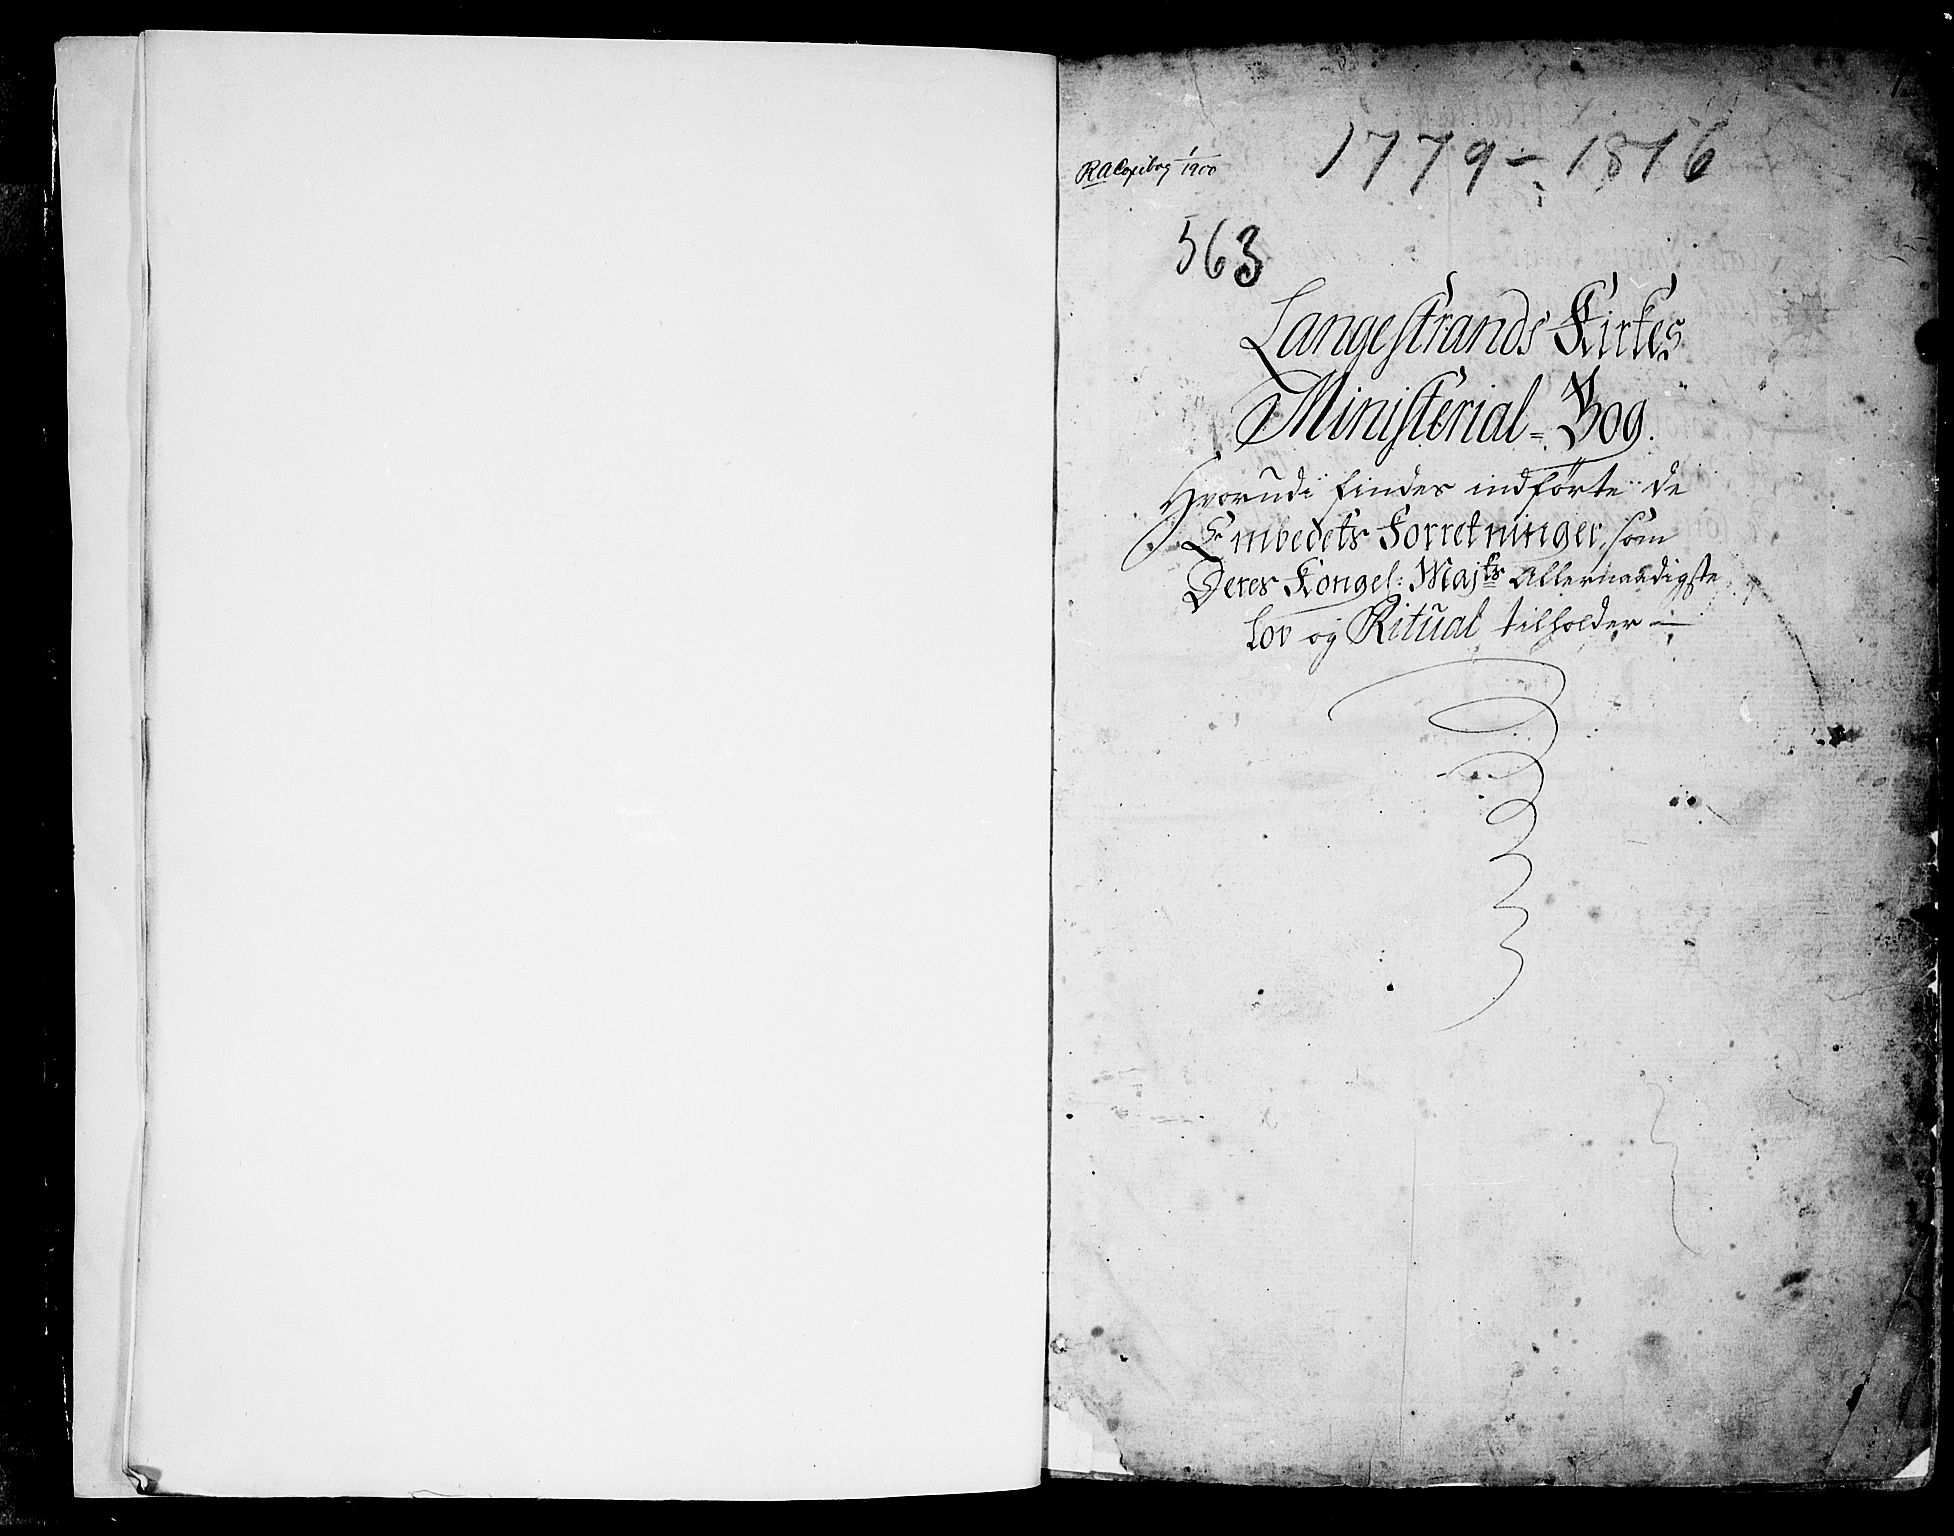 1779 – 1816
RA Copibog 1/1900
563
Langestrands Kirkes
Ministerial=Bog.
Hvorudi findes indførte de
Embedets Forretninger, som
Deres Kongel: Majts Allernaadigste
Lov og Ritual tilholder —